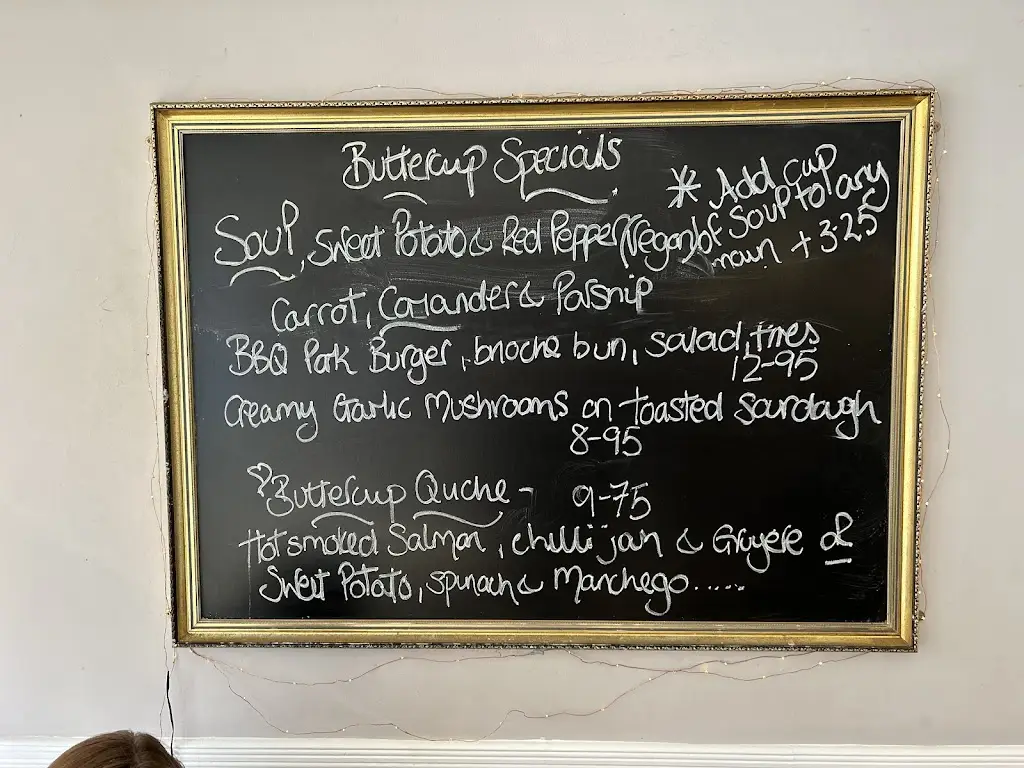 Buttercup Specials
* Add cup
of Soup to any
main + 3-25
Soup, Sweet Potato & Red Pepper (Vegan) or
Carrot, Coriander & Parsnip
BBQ Pork Burger, brioche bun, salad, fries
12-95
Creamy Garlic Mushrooms on toasted Sourdough
8-95
♡ Buttercup Quche - 9-75
Hot smoked Salmon, chilli jam & Gruyere or
Sweet Potato, spinach & Manchego.....